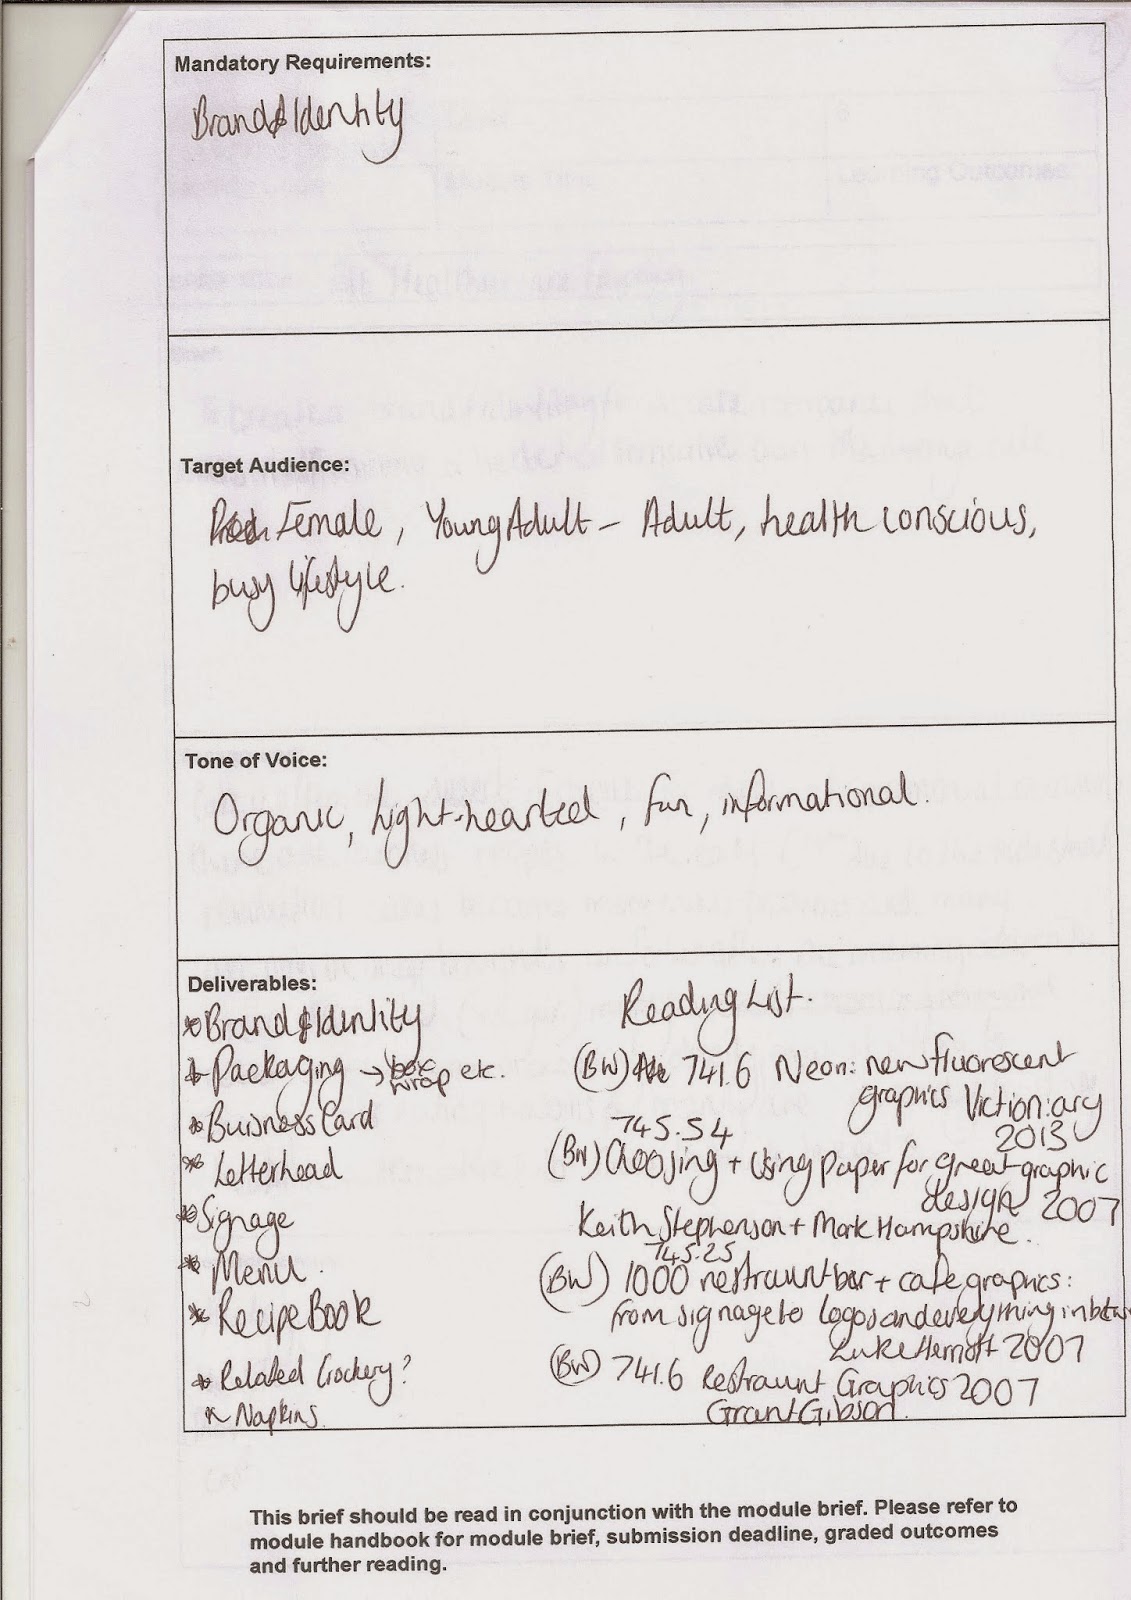 Mandatory Requirements:
Brand & Identity
Target Audience:
Female, Young Adult – Adult, health conscious,
busy lifestyle.
Tone of Voice:
Organic, light-hearted, fun, informational.
Deliverables:
* Brand & Identity
* Packaging → box wrap etc.
* Buisness Card
* Letterhead
* Signage
* Menu.
* Recipe Book
* Related Crockery?
* Napkins.
Reading List.
(BW) 741.6 Neon: new fluorescent
graphics Viction:ary
2013
745.54
(BW) Choosing + Using paper for great graphic
design 2007
Keith Stephenson + Mark Hampshire.
745.25
(BW) 1000 restraunt bar + cafe graphics:
from signage to logos and everything in
Luke Herriott 2007
(BW) 741.6 Restraunt Graphics 2007
Grant Gibson.
This brief should be read in conjunction with the module brief. Please refer to
module handbook for module brief, submission deadline, graded outcomes
and further reading.